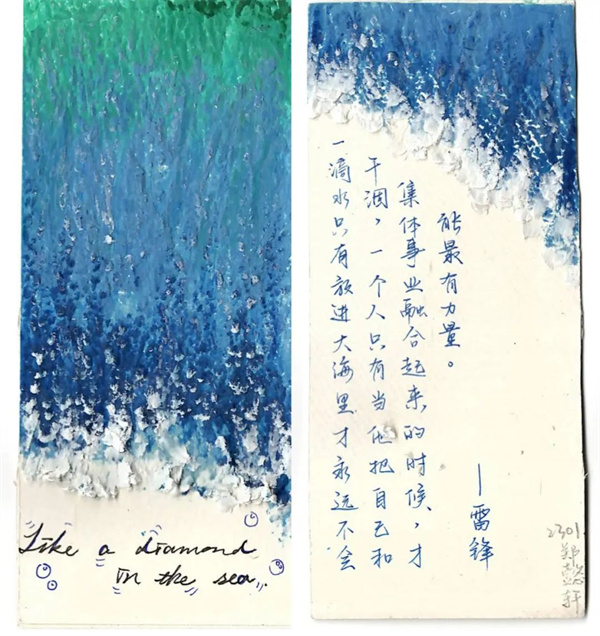 Like a diamond
in the sea.
一滴水只有放进大海里才永远不会
干涸，一个人只有当他把自己和
集体事业融合起来的时候，才
能最有力量。
—雷锋
2301.
郑懿轩